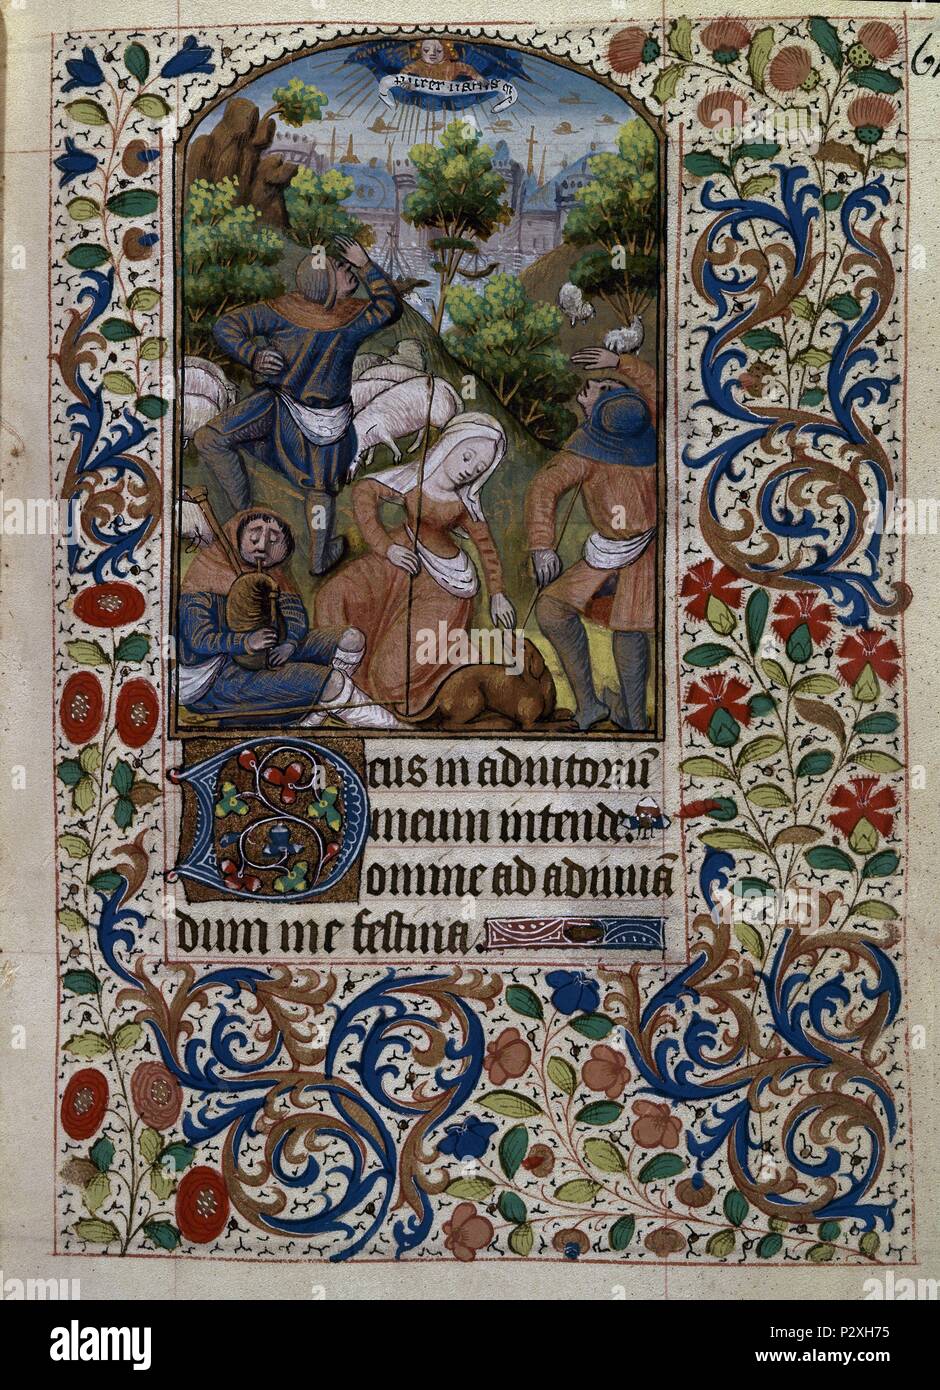 Deus in adiutoriū
meum intende.
Domine ad adiuuā
dum me festina.
alamy
Image ID: P2XH75
www.alamy.com